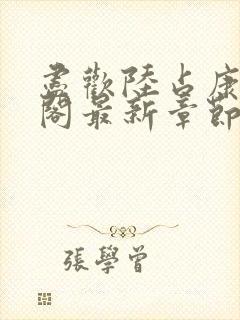 尽歡陸占康
閣最新章節
張學曾